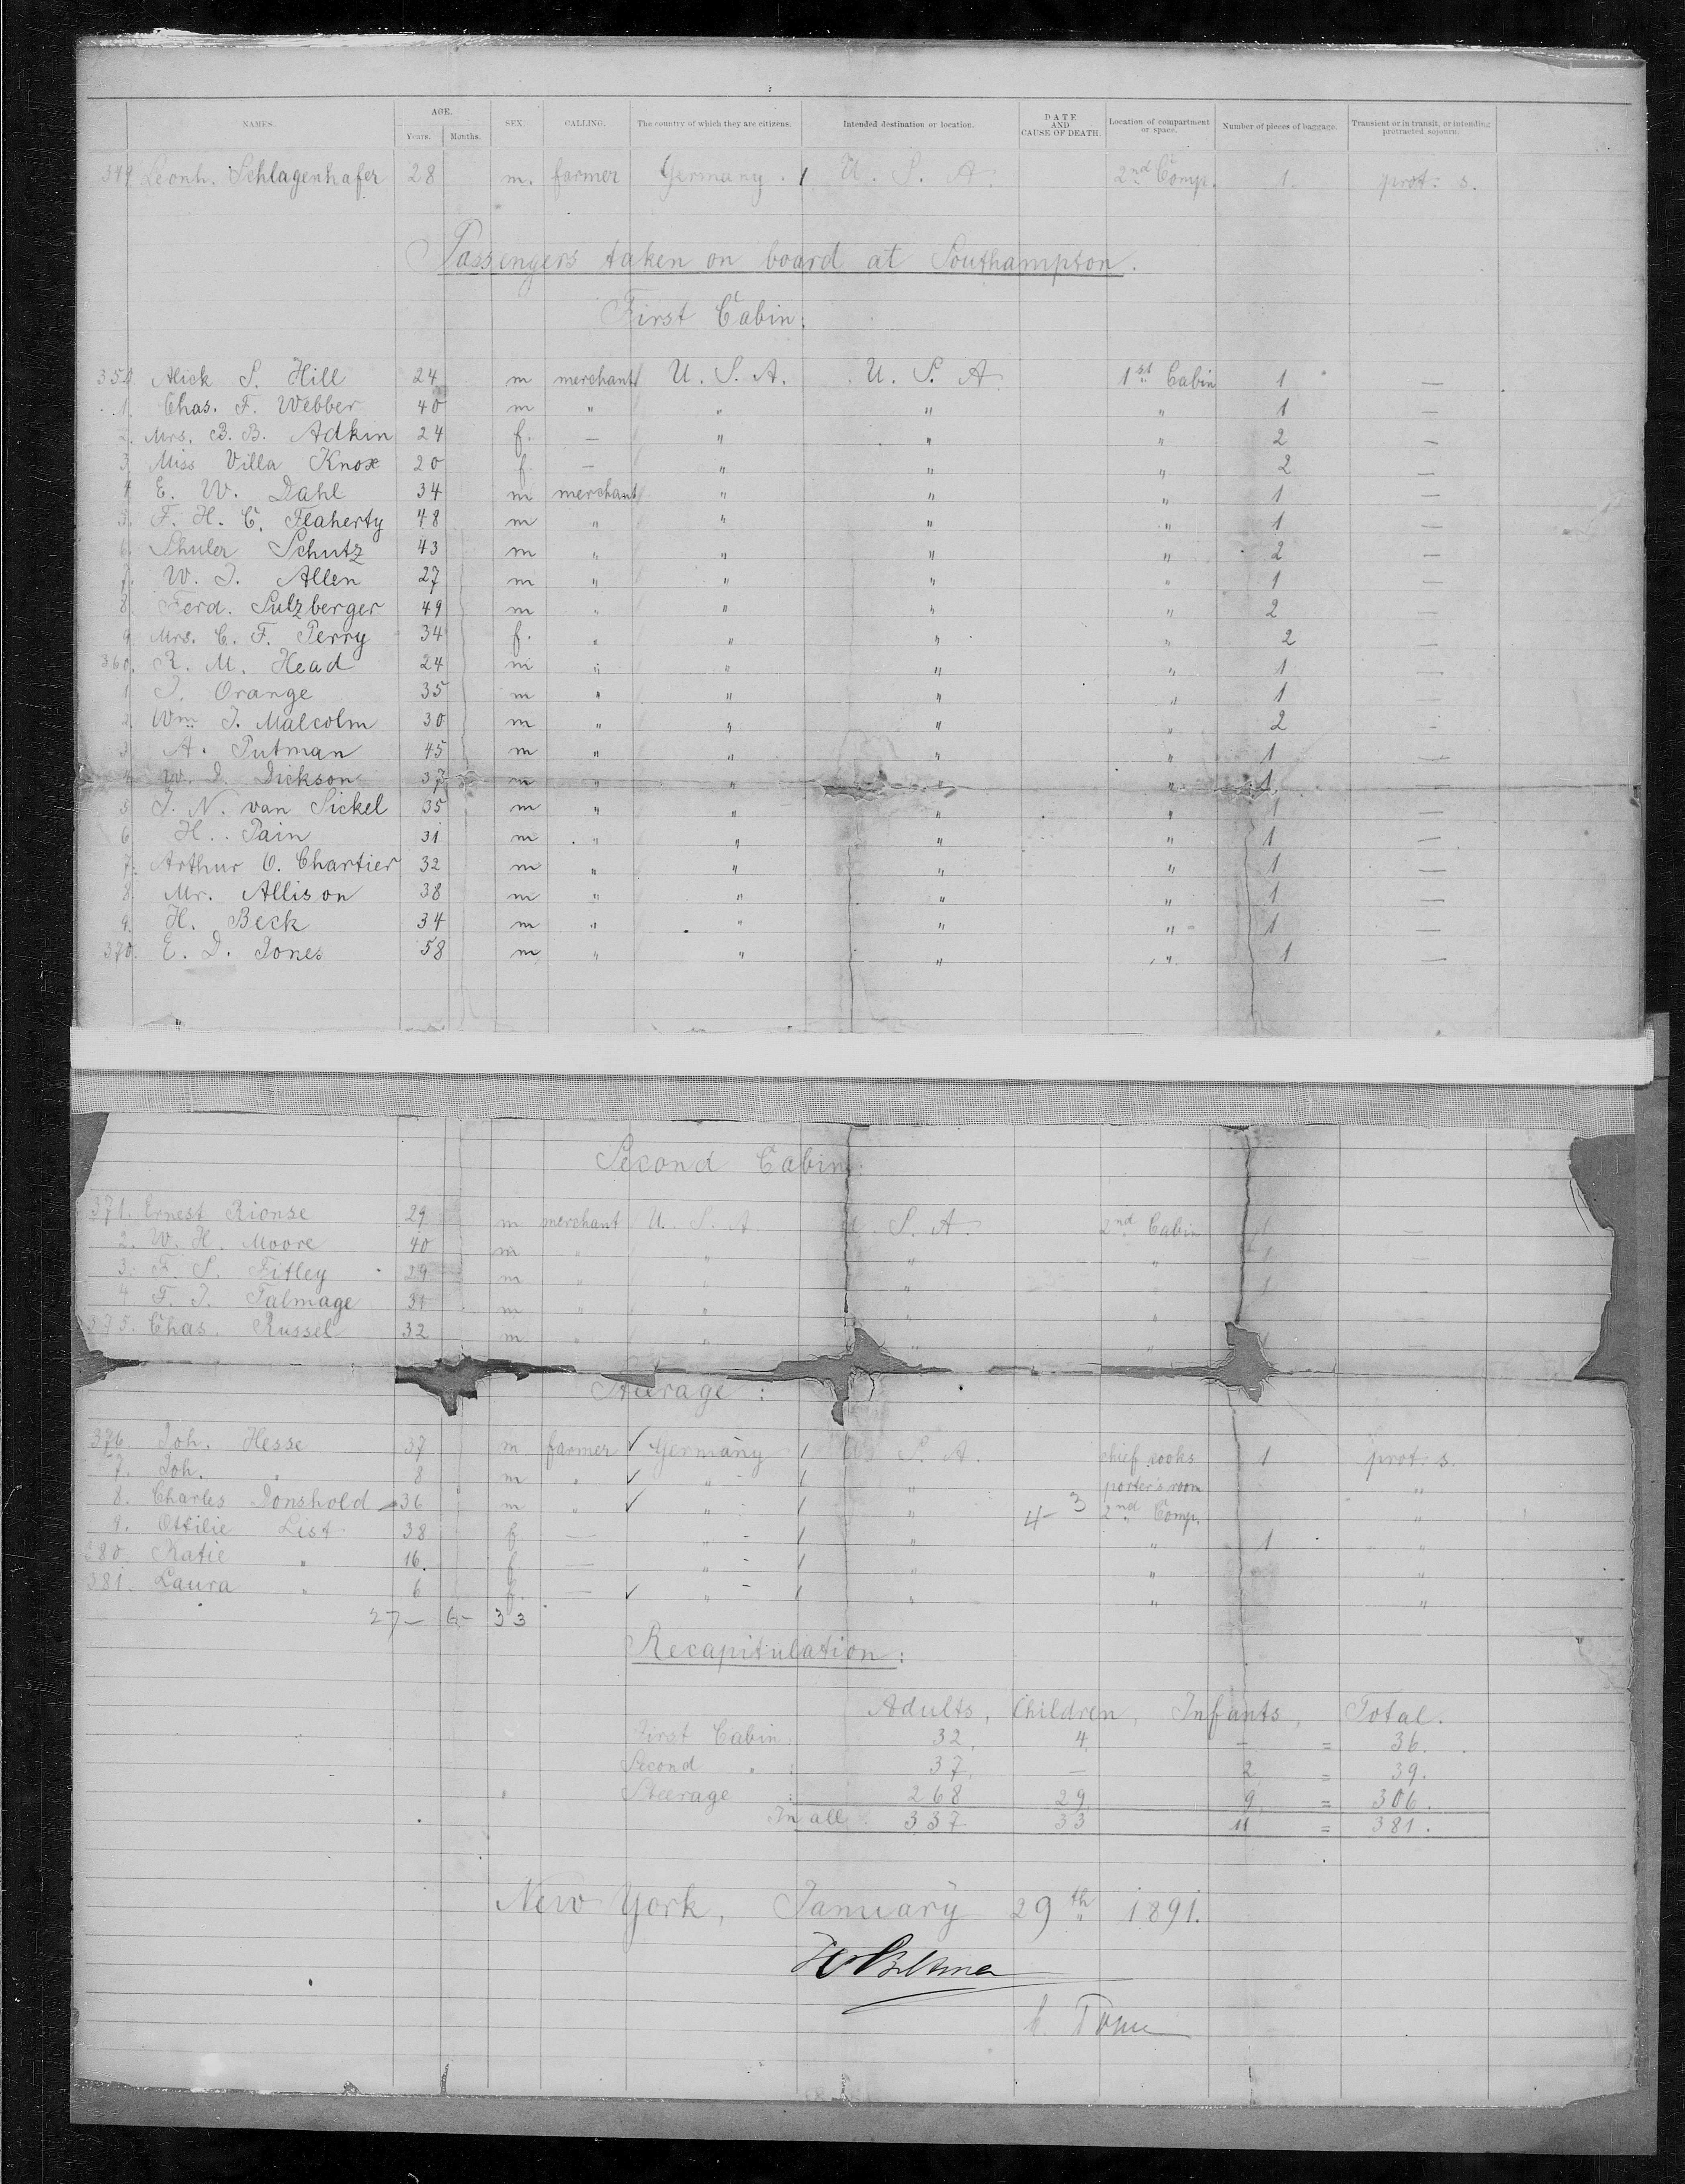 NAMES. AGE. Years. Months. SEX. CALLING. The country of which they are citizens. Intended destination or location. DATE AND CAUSE OF DEATH. Location of compartment or space. Number of pieces of baggage. Transient or in transit, or intending protracted sojourn.
349 Leonh. Schlagenhafer 28 m. farmer Germany. U. S. A. 2nd Comp. 1. prot: s.
Passengers taken on board at Southampton.
First Cabin:
350. Alick S. Hill 24 m merchant U. S. A. U. S. A. 1st Cabin 1 —
1. Chas. F. Webber 40 m " " " " 1 —
2. Mrs. B. B. Adkin 24 f. — " " " 2 —
3. Miss Villa Knox 20 f. — " " " 2 —
4. E. W. Dahl 34 m merchant " " " 1 —
5. F. H. C. Flaherty 48 m " " " " 1 —
6. Shuler Schutz 43 m " " " " 2 —
7. W. J. Allen 27 m " " " " 1 —
8. Ferd. Sulzberger 49 m " " " " 2 —
9. Mrs. C. F. Perry 34 f. " " " " 2 —
360. R. M. Head 24 m " " " " 1 —
1. J. Orange 35 m " " " " 1 —
2. Wm J. Malcolm 30 m " " " " 2 —
3. A. Putman 45 m " " " " 1 —
4. W. D. Dickson 37 m " " " " 1 —
5. J. N. van Sickel 35 m " " " " 1 —
6. H. Pain 31 m " " " " 1 —
7. Arthur O. Chartier 32 m " " " " 1 —
8. Mr. Allison 38 m " " " " 1 —
9. H. Beck 34 m " " " " 1 —
370. E. D. Jones 58 m " " " " 1 —
Second Cabin:
371. Ernest Rionse 29 m merchant U. S. A. U. S. A. 2nd Cabin 1 —
2. W. H. Moore 40 m " " " " 1 —
3. F. S. Fitley 29 m " " " " 1 —
4. F. J. Talmage 31 m " " " "
375. Chas. Russel 32 m " " " " —
Steerage:
376. Joh. Hesse 37 m farmer Germany U. S. A. chief cooks 1 prot: s.
7. Joh. " 8 m " " " porter's room "
8. Charles Donshold 36 m " " " 4- 3 2nd Comp. "
9. Ottilie List 38 f. — " " " 1 "
380. Katie " 16. f. — " " " "
381. Laura " 6 f. — " " " "
27 — 6 - 33
Recapitulation:
Adults, Children, Infants, Total.
First Cabin: 32, 4, — = 36.
Second " : 37, — 2 = 39.
Steerage : 268 29 9 = 306.
In all 337 33 11 = 381.
New York, January 29th 1891.